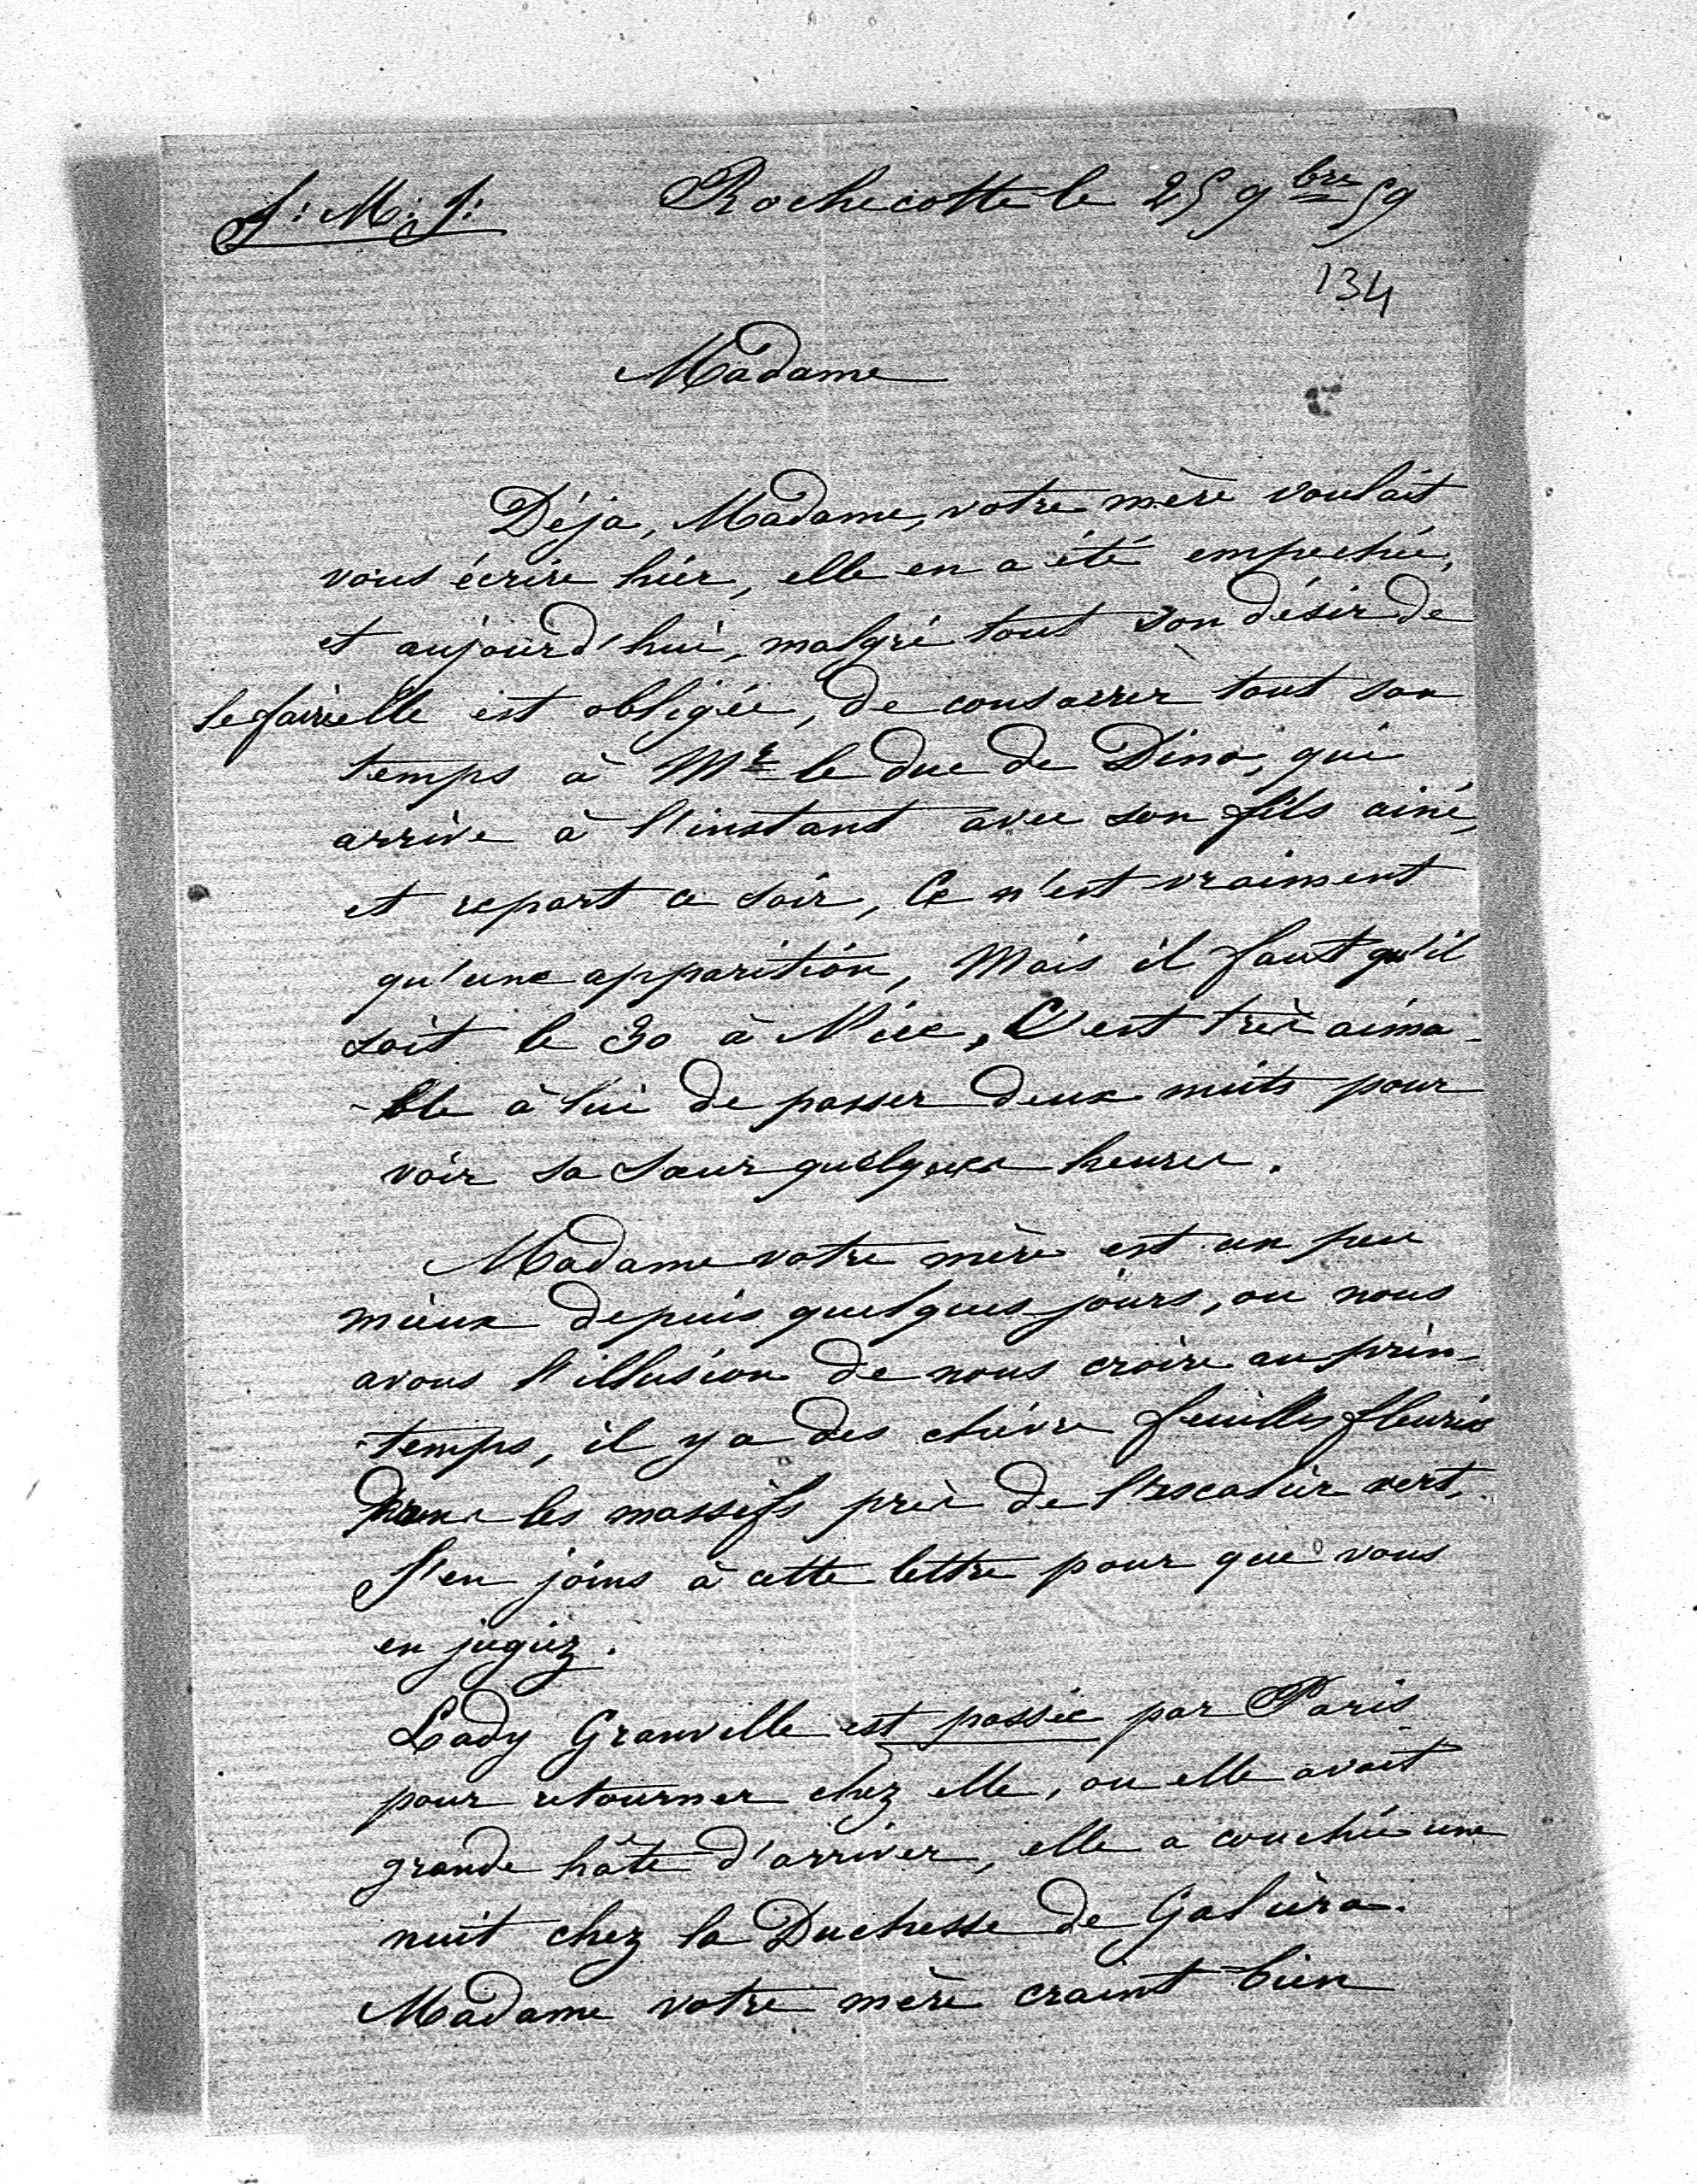 J: M: J: Rochecotte le 25 9bre 59
134
Madame
Déja, Madame, votre mère voulait
vous écrire hier, elle en a été empechée,
et aujourd'hui, malgré tout son désir de
le faire elle est obligée, de consacrer tout son
temps à Mr le duc de Dino, qui
arrive à l'instant avec son fils ainé,
et repart ce soir, Ce n'est vraiment
qu'une apparition, Mais il faut qu'il
soit le 30 à Nice, C'est très aima-
-ble à lui de passer deux nuits pour
voir sa sœur quelques heures.
Madame votre mère est un peu
mieux depuis quelques jours, ou nous
avons l'illusion de nous croire au prin-
-temps, il y a des chèvre feuilles fleuris
dans les massifs près de l'escalier vert,
J'en joins à cette lettre pour que vous
en jugiez.
Lady Granville est passée par Paris
pour retourner chez elle, ou elle avait
grande hâte d'arriver, elle a couchée une
nuit chez la Duchesse de Galiera.
Madame votre mère craint bien